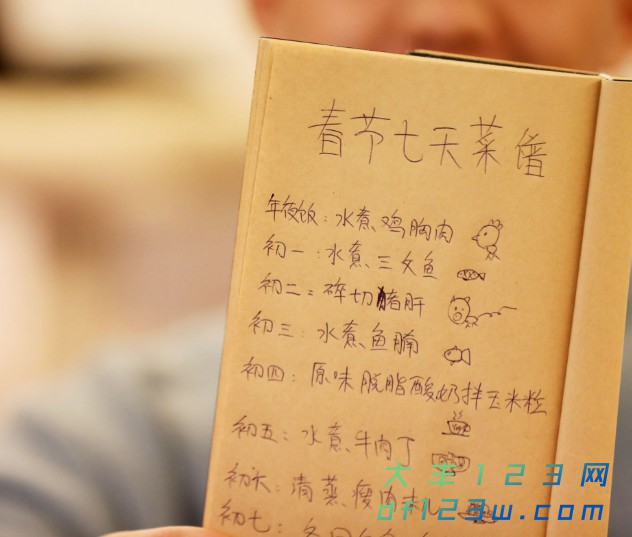 春节七天菜谱
年夜饭：水煮鸡胸肉
初一：水煮三文鱼
初二：碎切猪肝
初三：水煮鱼腩
初四：原味脱脂酸奶拌玉米粒
初五：水煮牛肉丁
初六：清蒸瘦肉末儿
初七：
大车123网